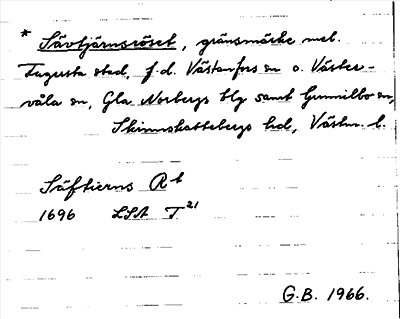 * Sävtjärnsröset, gränsmärke mel.
Fagersta stad, f.d. Västanfors sn o. Väster-
våla sn, Gla Norbergs blg samt Gunnilbo sn,
Skinnskattebergs hd, Västm. l.
Säftierns R t
1696 LSA T 21
G.B. 1966.